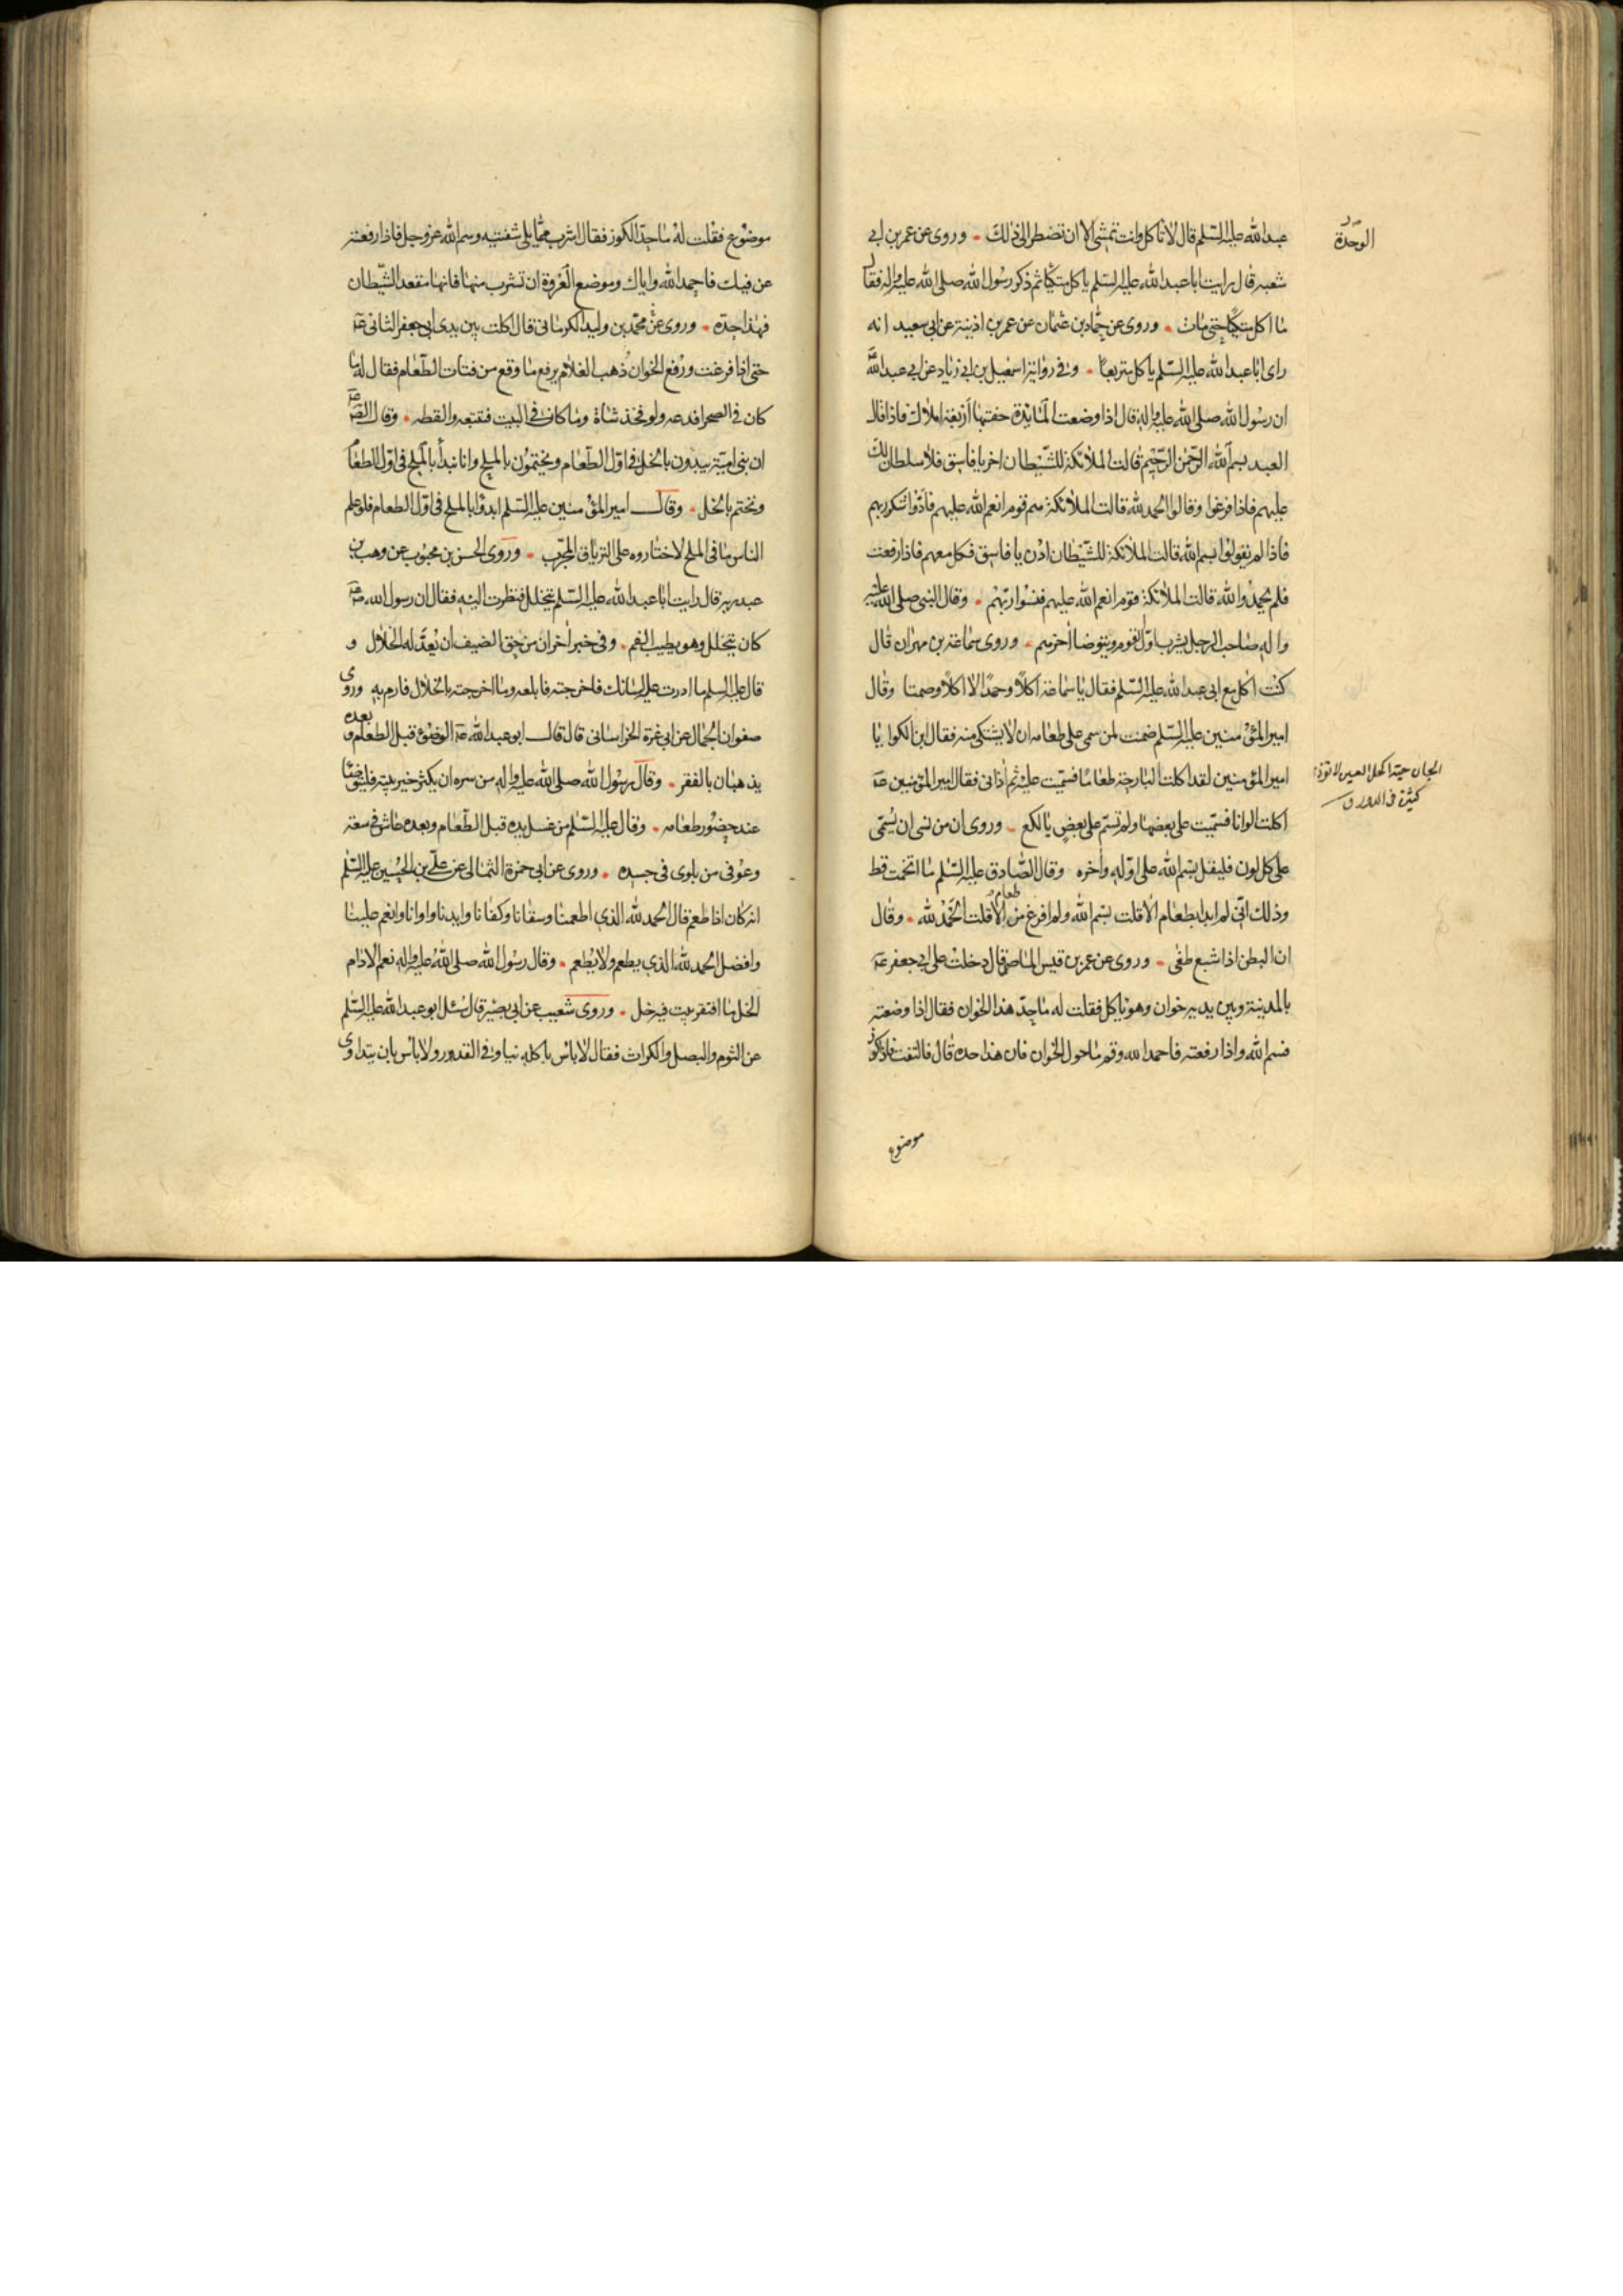 عبدالله عليه السلم قال لا تاكل وانت تمشى الا ان تضطر الى ذلك وروى عن عمر بن ابى
شعبه قال رايت ابا عبدالله عليه السلم ياكل متكيًا ثم ذكر رسول الله صلى الله عليه واله فقال
ما اكل متكيًا حتى مات وروى عن حماد بن عثمان عن عمر بن اذينة عن ابى سعيد انه
راى ابا عبدالله عليه السلم ياكل متربعًا وفى رواية اسمعيل بن ابى زياد عن ابى عبدالله
ان رسول الله صلى الله عليه واله قال اذا وضعت المائدة حفتها اربعة املاك فاذا قال
العبد بسم الله الرحمن الرحيم قالت الملائكة للشيطان اخرج يا فاسق فلا سلطان لك
عليهم فاذا فرغوا وقالوا الحمد لله قالت الملائكة هم قوم انعم الله عليهم فادوا شكر ربهم
فاذا لم يقولوا بسم الله قالت الملائكة للشيطان ادن يا فاسق فكل معهم فاذا رفعت
فلم يحمدوا الله قالت الملائكة قوم انعم الله عليهم فنسوا ربهم وقال النبى صلى الله عليه
واله صاحب الرحل يشرب اول القوم ويتوضا اخرهم وروى سماعة بن مهران قال
كنت اكل مع ابى عبدالله عليه السلم فقال يا سماعة اكلًا وحمدًا لا اكلًا وصمتا وقال
امير المؤمنين عليه السلم ضمنت لمن سمى على طعامه ان لا يشتكى منه فقال ابن الكوا يا
امير المؤمنين لقد اكلت البارحة طعامًا فسميت عليه ثم اذانى فقال امير المؤمنين ع
اكلت الوانا فسميت على بعضها ولم تسم على بعض يا لكع وروى ان من نسى ان يسمى
على كل لون فليقل بسم الله على اوله واخره وقال الصادق عليه السلم ما اتخمت قط
وذلك انى لم ابدا بطعام الا قلت بسم الله ولم افرغ من طعام الا قلت الحمد لله وقال
ان البطن اذا شبع طغى وروى عن عمر بن قيس الماصر قال دخلت على ابى جعفر ع
بالمدينة وبين يديه خوان وهو ياكل فقلت له ما حد هذا الخوان فقال اذا وضعته
فسم الله واذا رفعته فاحمد الله وقم ما حول الخوان فان هذا حده قال فالتفت فاذا كوز
موضوع
الوحدة
موضوع فقلت له ما حد الكوز فقال اشرب مما يلى شفتيه وسم الله عز وجل فاذا رفعته
عن فيك فاحمد الله واياك وموضع العروة ان تشرب منها فانها مقعد الشيطان
فهذا حده وروى عن محمد بن وليد الكرمانى قال اكلت بين يدى ابى جعفر الثانى ع
حتى اذا فرغت ورفع الخوان ذهب الغلام يرفع ما وقع من فتات الطعام فقال له ما
كان فى الصحرا فدعه ولو فخذ شاة وما كان فى البيت فتتبعه والقطه وقال الص ع
ان بنى امية يبدون بالخل فى اول الطعام ويختمون بالملح وانا نبدأ بالملح فى اول الطعام
ونختم بالخل وقال امير المؤمنين عليه السلم ابدؤا بالملح فى اول الطعام فلو علم
الناس ما فى الملح لاختاروه على الترياق المجرب وروى الحسن بن محبوب عن وهب بن
عبدربه قال رايت ابا عبدالله عليه السلم يتخلل فنظرت اليه فقال ان رسول الله ص
كان يتخلل وهو يطيب الفم وفى خبر اخر ان من حق الضيف ان يعد له الخلال و
قال عليه السلم ما ادرت عليه لسانك فاخرجته فابلعه وما اخرجته بالخلال فارم به وروى
صفوان الجمال عن ابى غرة الخراسانى قال قال ابو عبدالله ع الوضوء قبل الطعام وبعده
يذهبان بالفقر وقال رسول الله صلى الله عليه واله من سره ان يكثر خير بيته فليتوضأ
عند حضور طعامه وقال عليه السلم من غسل يده قبل الطعام وبعده عاش فى سعة
وعوفى من بلوى فى جسده وروى عن ابى حمزة الثمالى عن على بن الحسين عليه السلم
انه كان اذا طعم قال الحمد لله الذى اطعمنا وسقانا وكفانا وايدنا واوانا وانعم علينا
وافضل الحمد لله الذى يطعم ولا يطعم وقال رسول الله صلى الله عليه واله نعم الادام
الخل ما افتقر بيت فيه خل وروى شعيب عن ابى بصير قال سئل ابو عبدالله عليه السلم
عن الثوم والبصل والكراث فقال لا باس باكله نيا وفى القدور ولا باس بان يتداوى